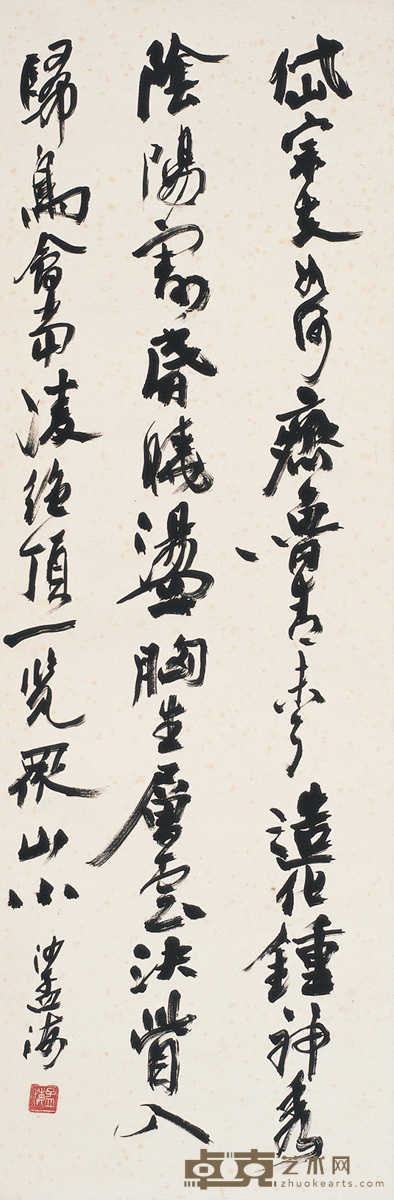 岱宗夫如何齊魯青未了造化鍾神秀
陰陽割昏曉盪胸生層雲決眥入
歸鳥會當凌絕頂一覽眾山小
沙孟海
卓克艺术网
zhuokearts.com